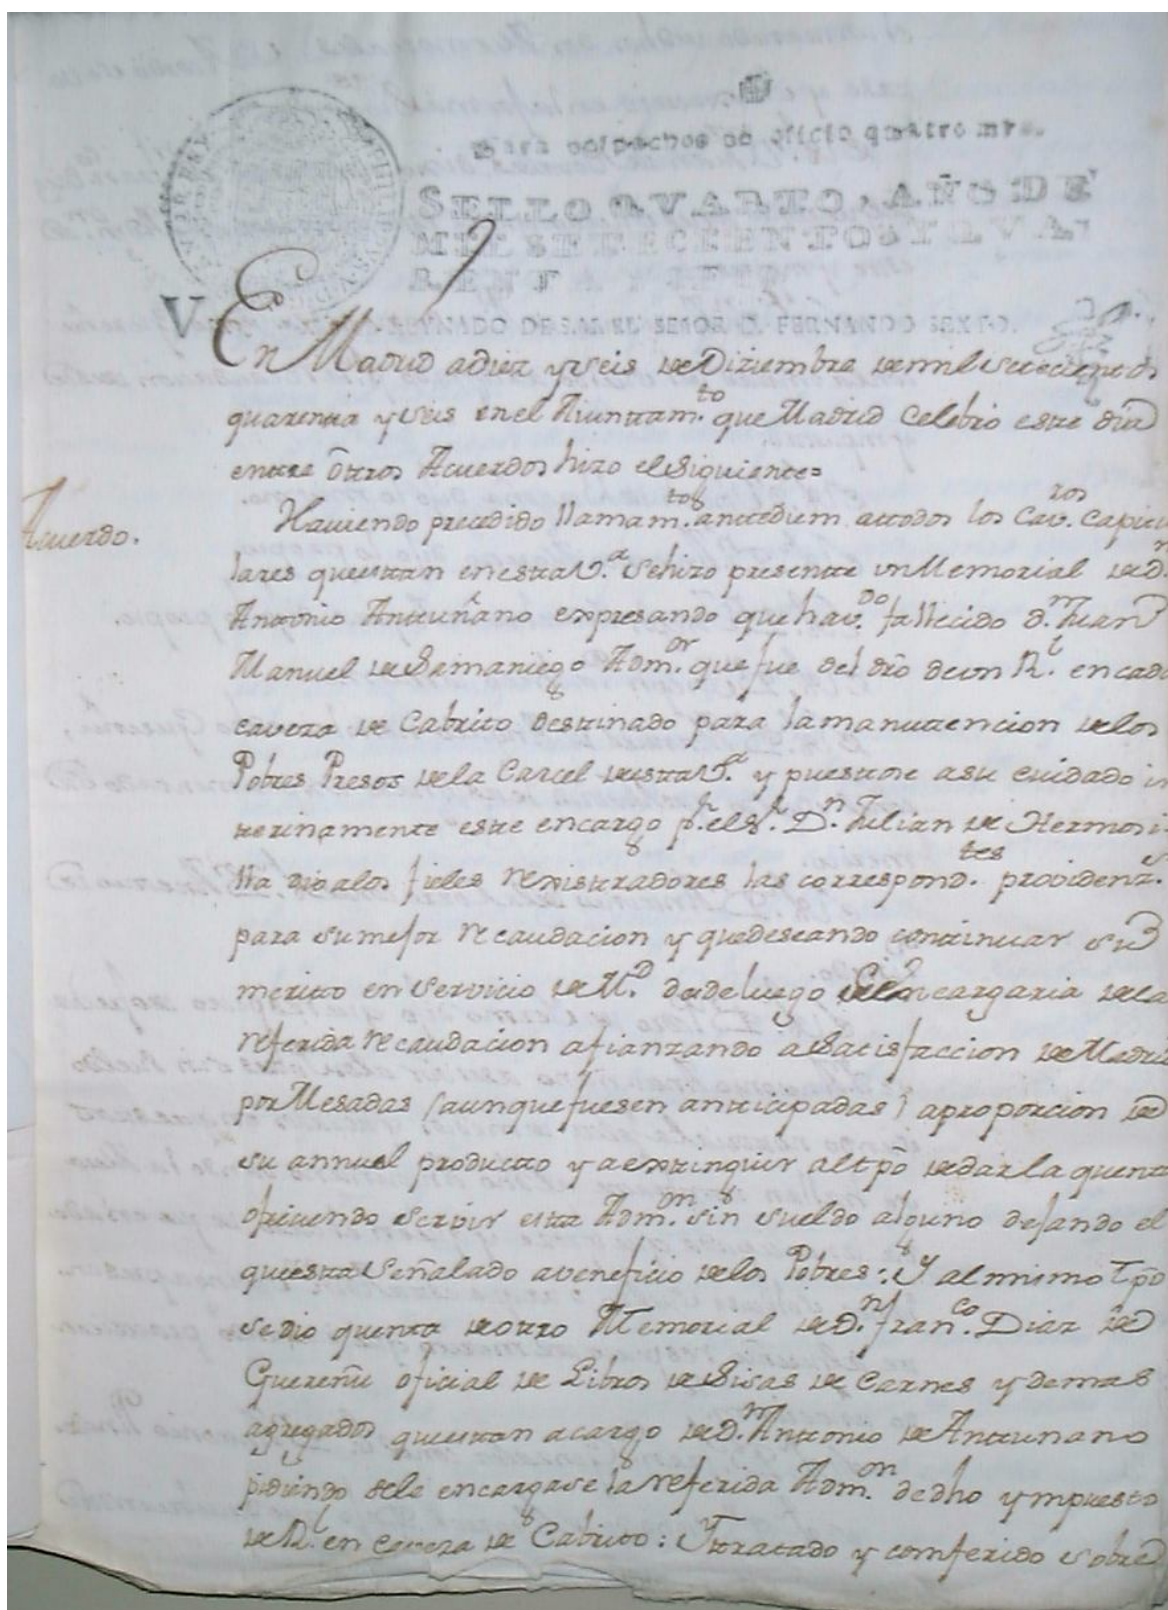 Para despachos de oficio quatro mrs.
SELLO QVARTO, AÑO DE
MIL SETECIENTOS Y QVA,
RENTA Y SEIS
V REYNADO DE S.M. EL SEÑOR D. FERNANDO SEXTO.
En Madrid a diez y seis de Diziembre de mil setecientos
quarenta y seis en el Aiuntam.to que Madrid celebrò este dia
entre òtros Acuerdos hizo el siguiente=
Acuerdo.
Haviendo precedido llamam.to antediem a todos los Cav.ros Capitu
lares que estan en esta V.a se hizo presente un Memorial de D.n
Antonio Antuñano expresando que hav.do fallecido d.n Juan
Manuel de Samaniego Adm.or que fue del dro de un R.l en cada
caveza de Cabrito destinado para la manutencion de los
Pobres Presos de la Carcel de esta V.a y puestose a su cuidado in
terinamente este encargo p.r el S.r D.n Julian de Hermosi
lla dio a los fieles rexistradores las correspond.tes providenz.s
para su mejor recaudacion y que deseando continuar su
merito en servicio de M.d desde luego se encargaria de la
referida recaudacion afianzando a satisfaccion de Madrid
por Mesadas (aunque fuesen anticipadas) a proporcion de
su annual producto y a extinguir al tpo de dar la quenta
ofriciendo servir esta Adm.on sin sueldo alguno dejando el
que esta señalado a veneficio de los Pobres: Y al mismo tpo
se dio quenta de otro Memorial de D.n fran.co Diaz de
Guereñu oficial de Libros de Sisas de Carnes y demas
agregados que estan a cargo de d.n Antonio de Antunano
pidiendo se le encargase la referida Adm.on de dho ympuesto
de R.l en caveza de Cabrito: Y tratado y comferido sobre